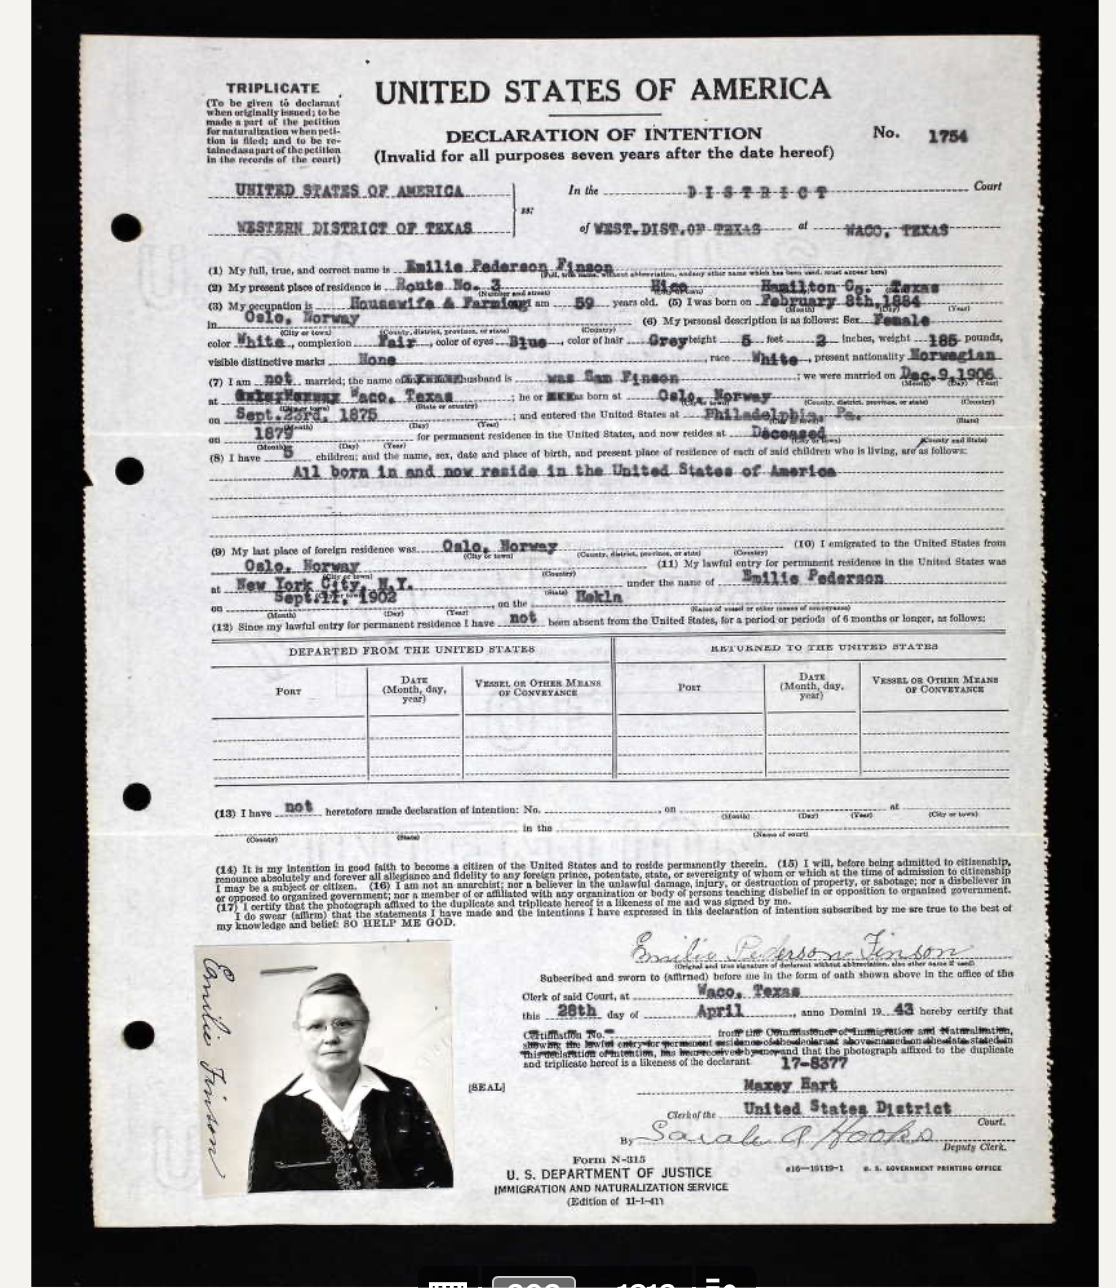 TRIPLICATE
(To be given to declarant
when originally issued; to be
made a part of the petition
for naturalization when peti-
tion is filed; and to be re-
tained as a part of the petition
in the records of the court)
UNITED STATES OF AMERICA
DECLARATION OF INTENTION
(Invalid for all purposes seven years after the date hereof)
No. 1754
UNITED STATES OF AMERICA
WESTERN DISTRICT OF TEXAS
ss:
In the DISTRICT Court
of WEST.DIST.OF TEXAS at WACO, TEXAS
(1) My full, true, and correct name is Emilie Pederson Finson
(Full, true name, without abbreviation, and any other name which has been used, must appear here)
(2) My present place of residence is Route No. 3 Hico Hamilton Co. Texas
(Number and street)
(3) My occupation is Housewife & Farming I am 59 years old. (5) I was born on February 8th, 1884
(Month) (Day) (Year)
in Oslo, Norway (6) My personal description is as follows: Sex Female
(City or town) (County, district, province, or state) (Country)
color White, complexion Fair, color of eyes Blue, color of hair Grey height 5 feet 2 inches, weight 185 pounds,
visible distinctive marks None, race White, present nationality Norwegian
(7) I am not married; the name of husband is was Sam Finson; we were married on Dec. 9, 1906
(Month) (Day) (Year)
at Waco, Texas; he or was born at Oslo, Norway
(State or country) (City or town) (County, district, province, or state) (Country)
on Sept. 23rd, 1875; and entered the United States at Philadelphia, Pa.
(Month) (Day) (Year) (City or town) (State)
on 1879 for permanent residence in the United States, and now resides at Deceased
(Month) (Day) (Year) (City or town) (County and State)
(8) I have 5 children; and the name, sex, date and place of birth, and present place of residence of each of said children who is living, are as follows:
All born in and now reside in the United States of America
(9) My last place of foreign residence was Oslo, Norway (10) I emigrated to the United States from
(City or town) (County, district, province, or state) (Country)
Oslo, Norway (11) My lawful entry for permanent residence in the United States was
(City or town) (Country)
at New York City, N.Y. under the name of Emilie Pederson
(State)
on Sept. 11, 1902, on the Hekla
(Month) (Day) (Year) (Name of vessel or other means of conveyance)
(12) Since my lawful entry for permanent residence I have not been absent from the United States, for a period or periods of 6 months or longer, as follows:
DEPARTED FROM THE UNITED STATES
RETURNED TO THE UNITED STATES
PORT
DATE
(Month, day,
year)
VESSEL OR OTHER MEANS
OF CONVEYANCE
PORT
DATE
(Month, day,
year)
VESSEL OR OTHER MEANS
OF CONVEYANCE
(13) I have not heretofore made declaration of intention: No. , on at
(Month) (Day) (Year) (City or town)
in the
(County) (State) (Name of court)
(14) It is my intention in good faith to become a citizen of the United States and to reside permanently therein. (15) I will, before being admitted to citizenship,
renounce absolutely and forever all allegiance and fidelity to any foreign prince, potentate, state, or sovereignty of whom or which at the time of admission to citizenship
I may be a subject or citizen. (16) I am not an anarchist; nor a believer in the unlawful damage, injury, or destruction of property, or sabotage; nor a disbeliever in
or opposed to organized government; nor a member of or affiliated with any organization or body of persons teaching disbelief in or opposition to organized government.
(17) I certify that the photograph affixed to the duplicate and triplicate hereof is a likeness of me and was signed by me.
I do swear (affirm) that the statements I have made and the intentions I have expressed in this declaration of intention subscribed by me are true to the best of
my knowledge and belief: SO HELP ME GOD.
Emilie Finson
Emilie Pederson Finson
(Original and true signature of declarant without abbreviation, also other name if used)
Subscribed and sworn to (affirmed) before me in the form of oath shown above in the office of the
Clerk of said Court, at Waco, Texas
this 28th day of April, anno Domini 19 43 hereby certify that
Certification No. from the Commissioner of Immigration and Naturalization,
showing the lawful entry for permanent residence of the declarant above named on the date stated in
this declaration of intention, has been received by me, and that the photograph affixed to the duplicate
and triplicate hereof is a likeness of the declarant 17-8377
[SEAL]
Maxey Hart
Clerk of the United States District Court.
By Sarah P Hooks
Deputy Clerk.
Form N-315
U. S. DEPARTMENT OF JUSTICE
IMMIGRATION AND NATURALIZATION SERVICE
(Edition of 11-1-41)
16—19119-1 U. S. GOVERNMENT PRINTING OFFICE